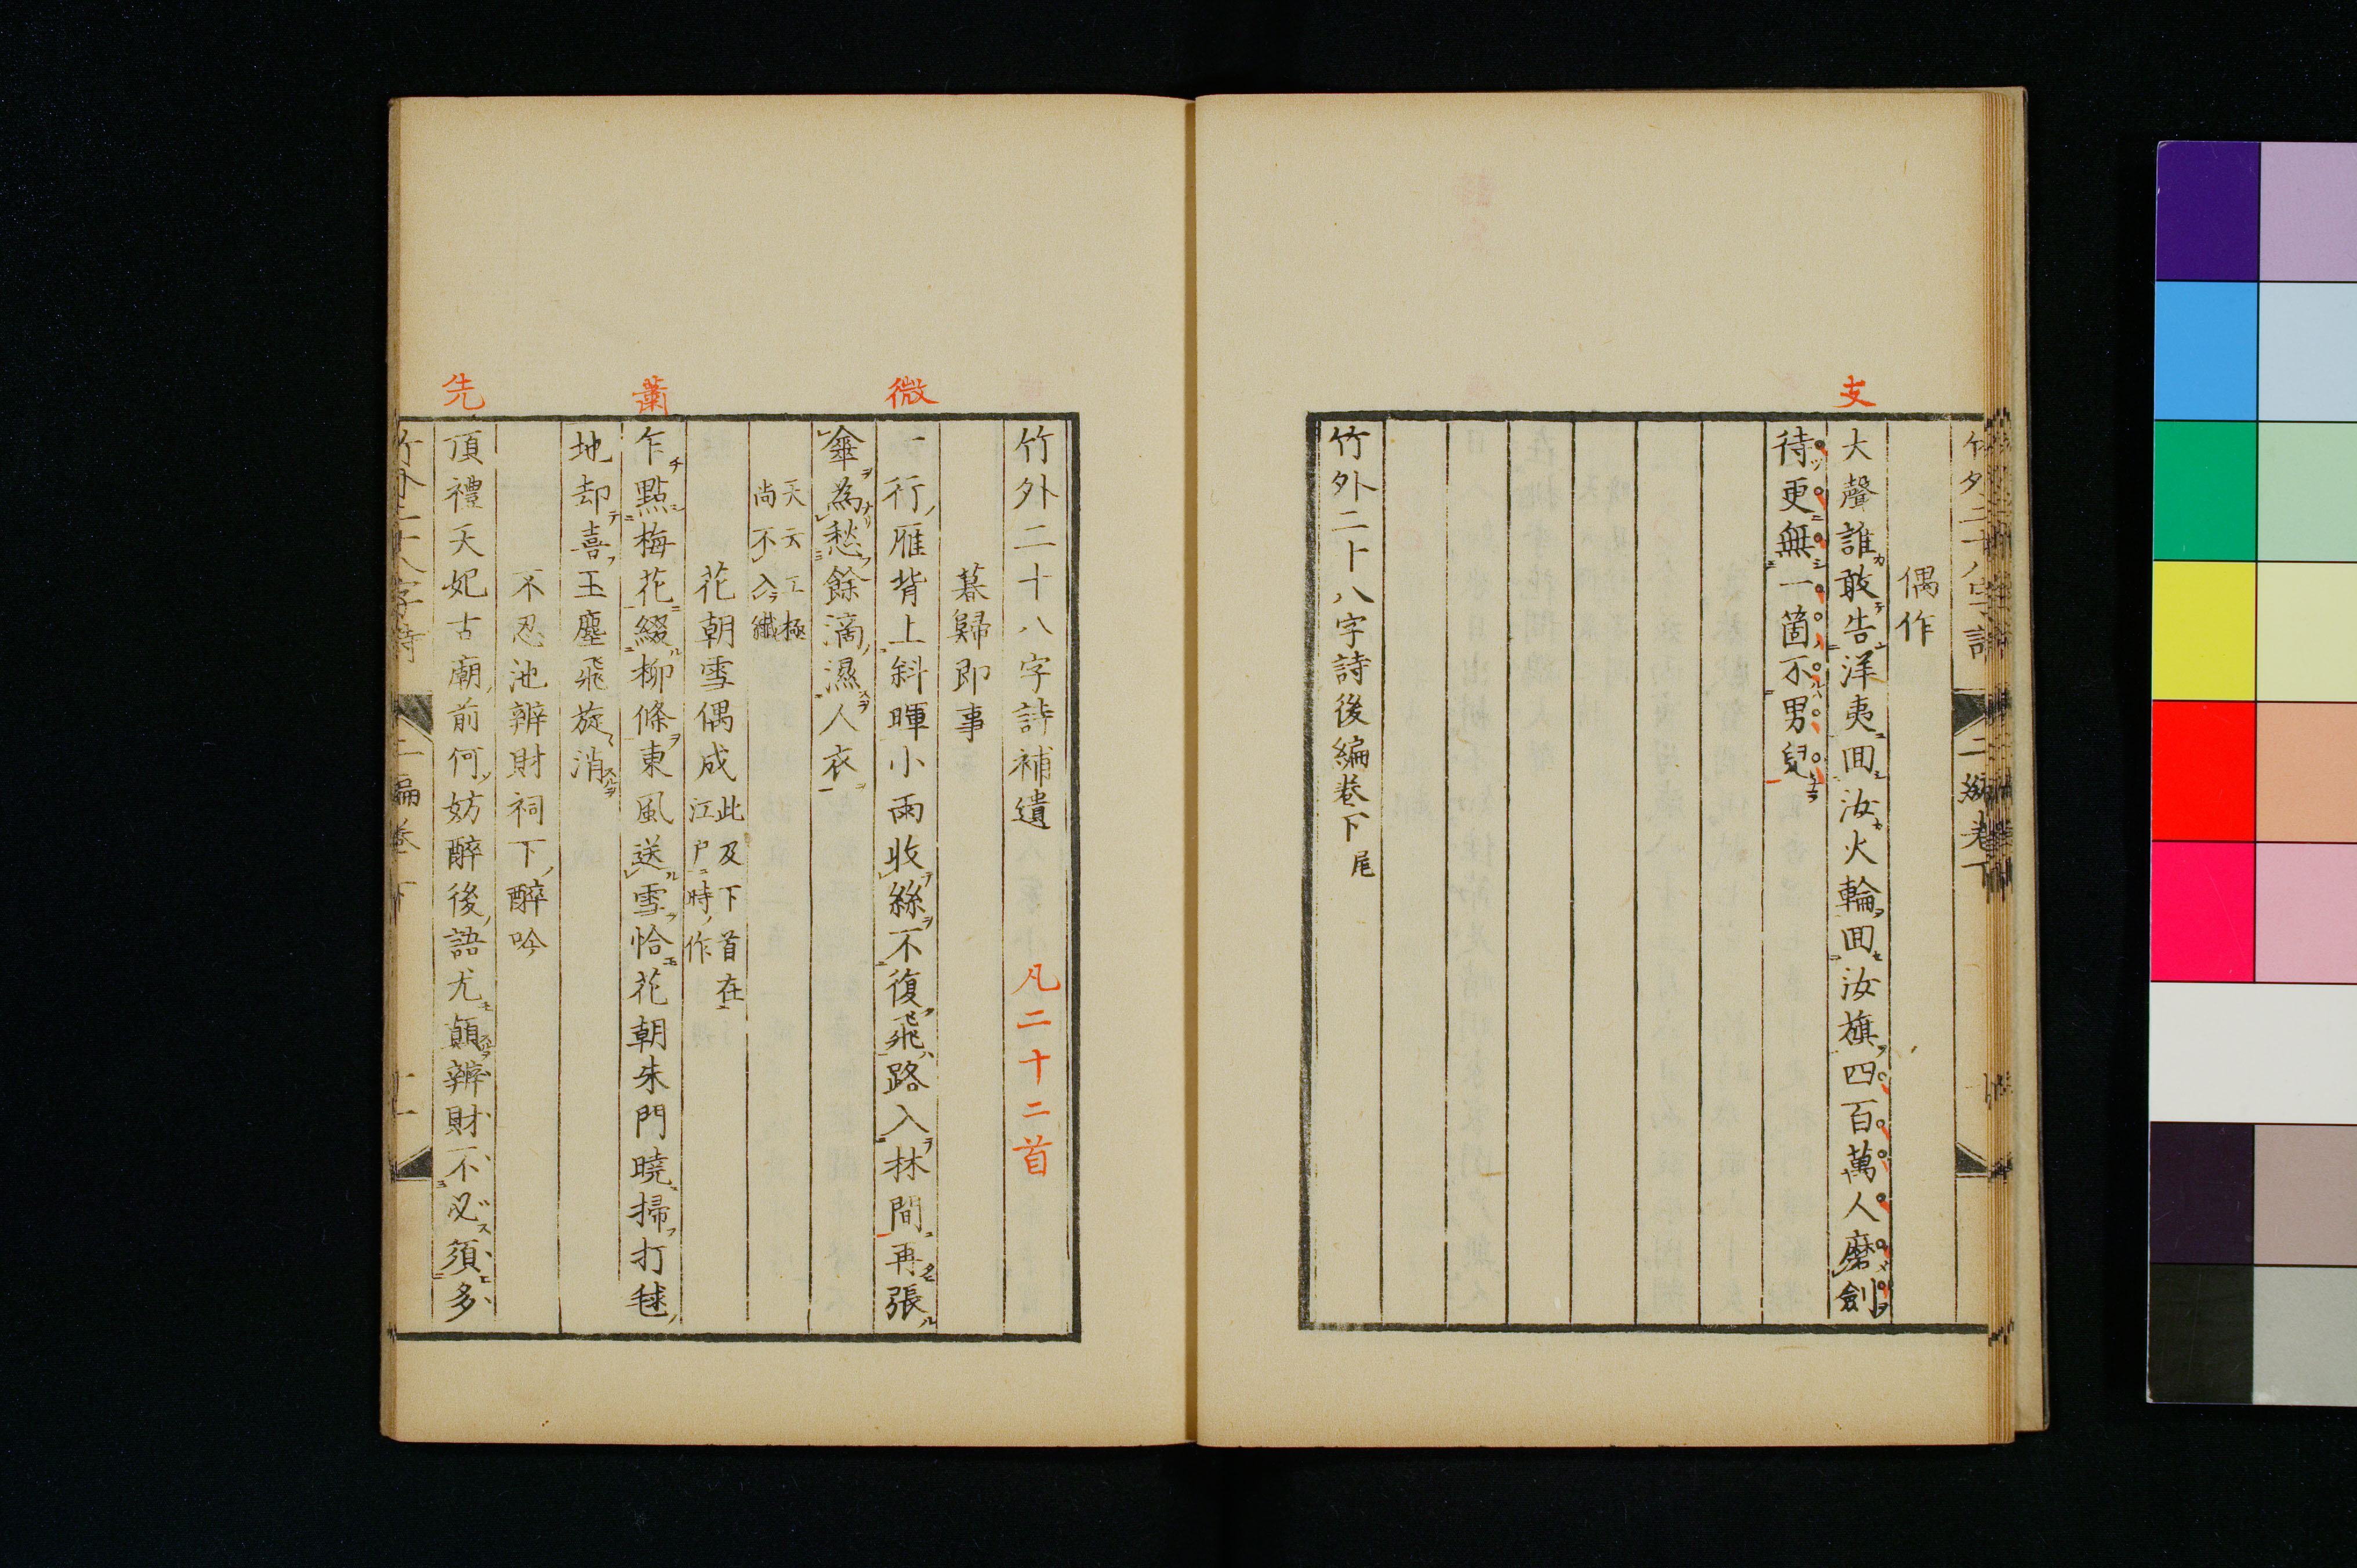 支
竹外二十八字詩 二編卷下
偶作
大聲誰敢告洋夷囬汝火輪囬汝旗四百萬人磨劍
待更無一箇不男兒
竹外二十八字詩後編卷下尾
微
竹外二十八字詩補遺 凡二十二首
暮歸即事
一行雁背上斜暉小雨收絲不復飛路入林間再張
傘為愁餘滴濕人衣
天云工極
尚不入纖
花朝雪偶成 此及下首在
江戶時作
蕭
乍點梅花綴柳條東風送雪恰花朝朱門曉掃打毬
地却喜玉塵飛旋消
不忍池辨財祠下醉吟
先
頂禮天妃古廟前何妨醉後語尤顛辨財不必須多
竹外二十八字詩 二編卷下 十一